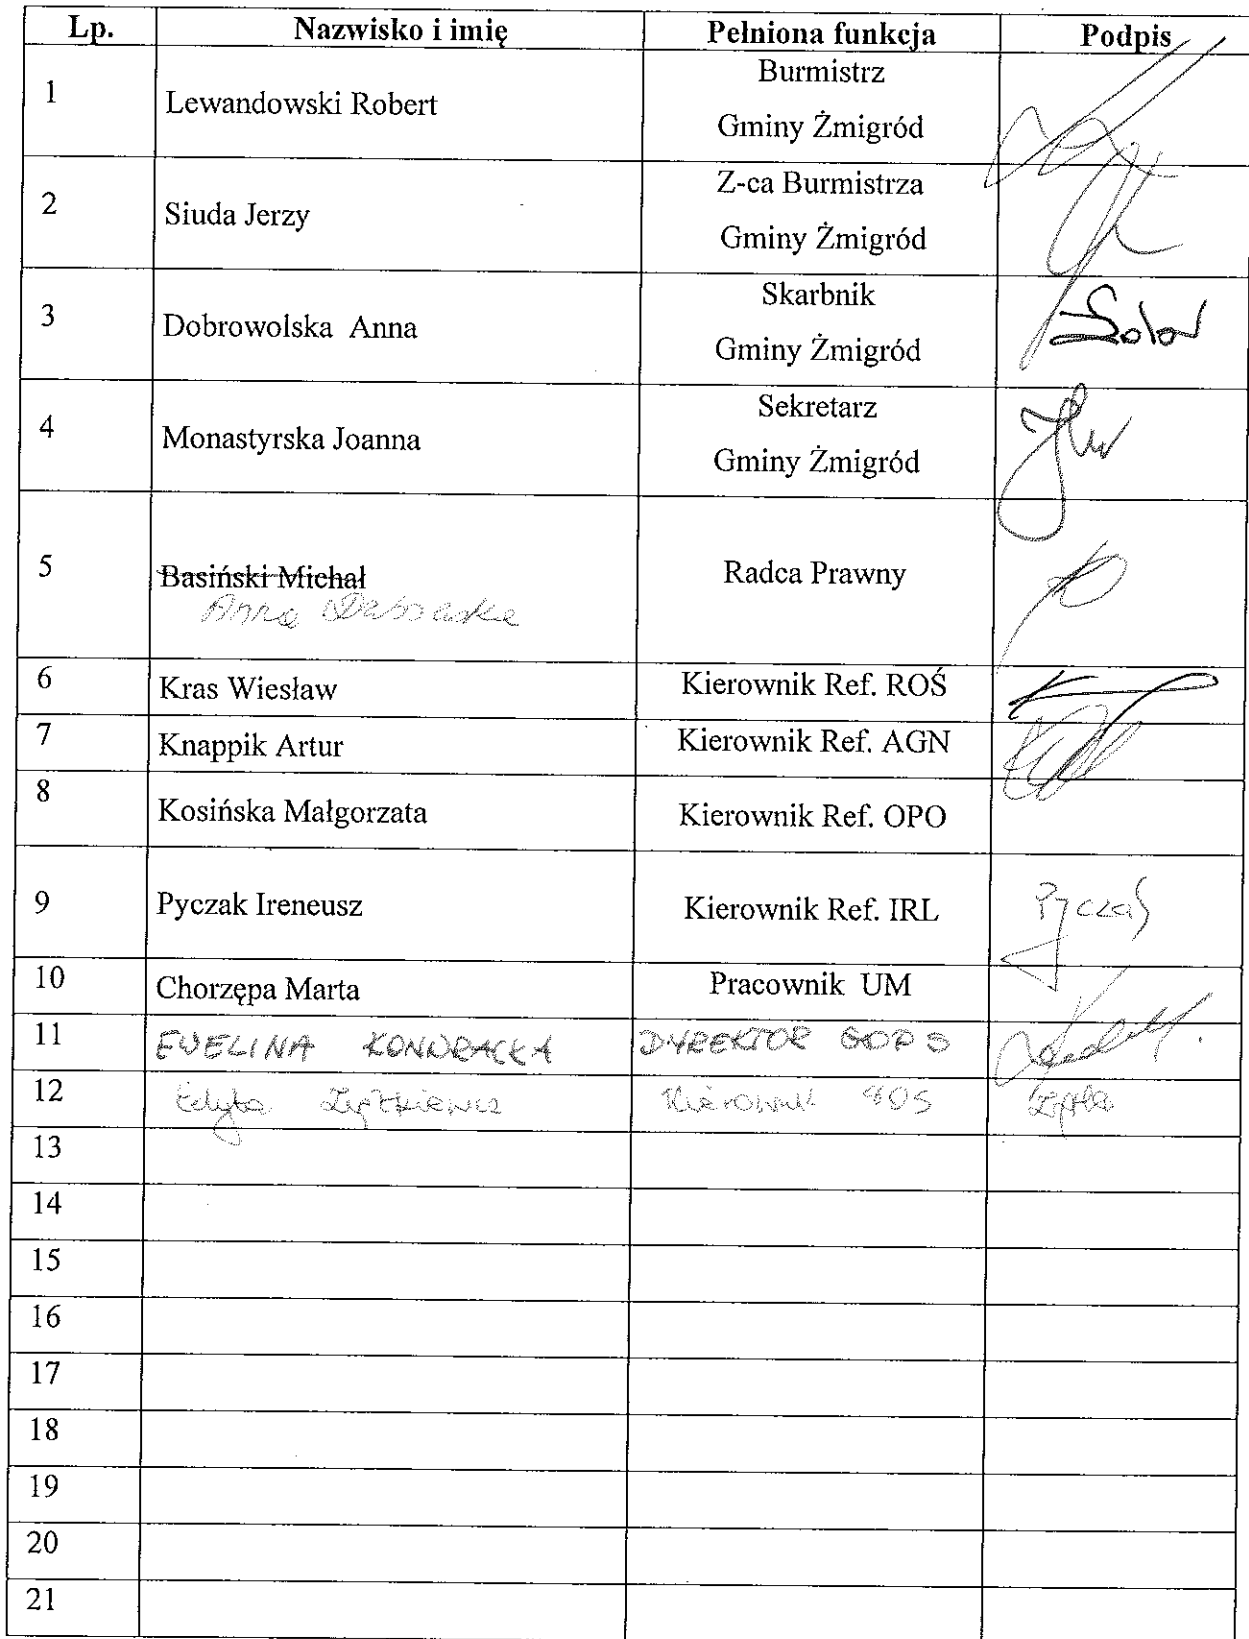 Lp. Nazwisko i imię Pełniona funkcja Podpis
1 Lewandowski Robert Burmistrz
Gminy Żmigród
2 Siuda Jerzy Z-ca Burmistrza
Gminy Żmigród
3 Dobrowolska Anna Skarbnik
Gminy Żmigród
4 Monastyrska Joanna Sekretarz
Gminy Żmigród
5 Basiński Michał Radca Prawny
Anna
6 Kras Wiesław Kierownik Ref. ROŚ
7 Knappik Artur Kierownik Ref. AGN
8 Kosińska Małgorzata Kierownik Ref. OPO
9 Pyczak Ireneusz Kierownik Ref. IRL
10 Chorzępa Marta Pracownik UM
11 EWELINA KONDRACKA DYREKTOR GOPS
12 Edyta Kierownik
13
14
15
16
17
18
19
20
21